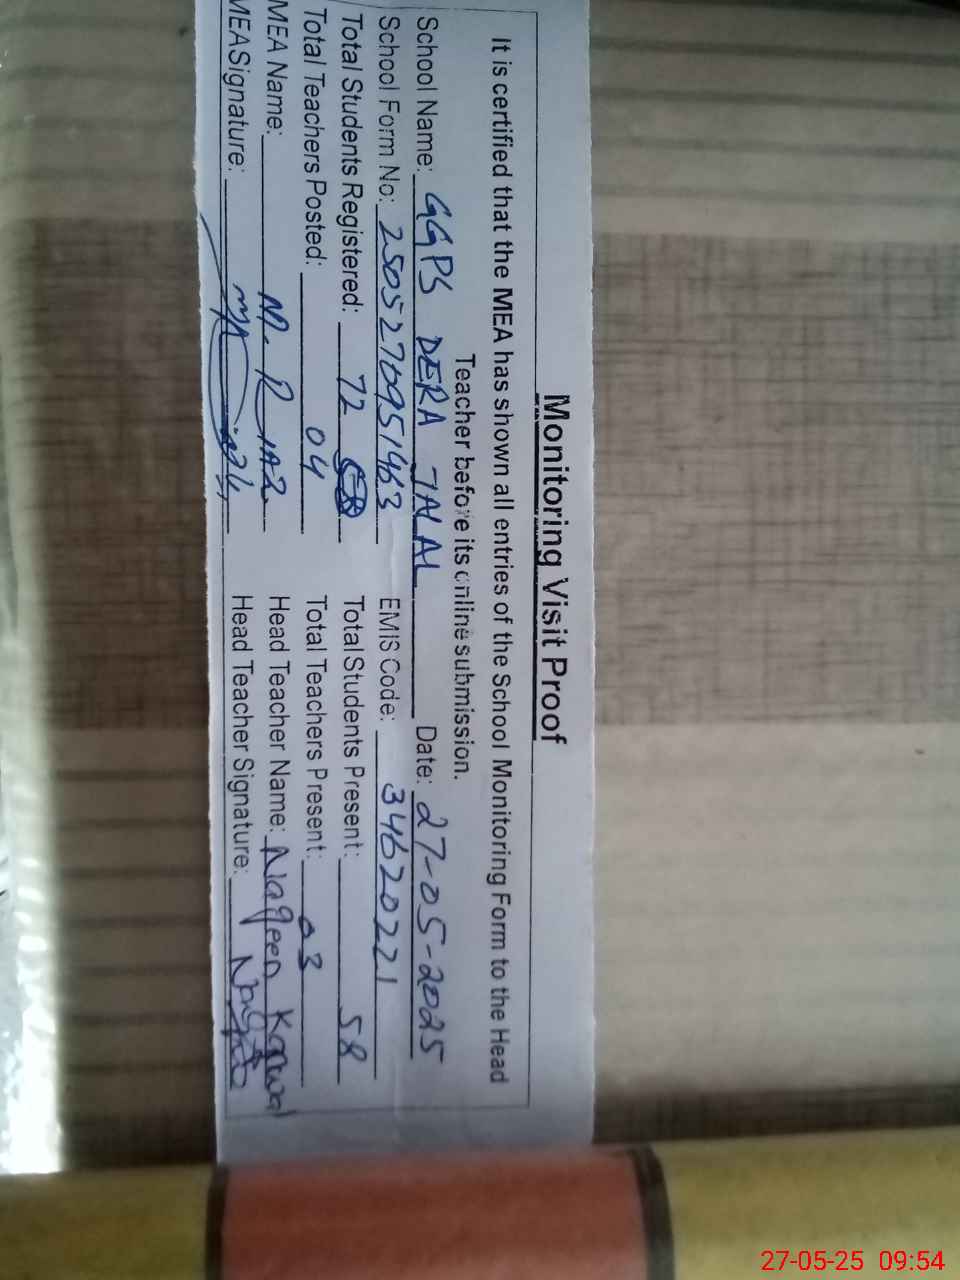 Monitoring Visit Proof
It is certified that the MEA has shown all entries of the School Monitoring Form to the Head
Teacher before its online submission.
School Name: GGPS DERA JALAL Date: 27-05-2025
School Form No: 2505270951463 EMIS Code: 34620221
Total Students Registered: 72 Total Students Present: 58
Total Teachers Posted: 04 Total Teachers Present: 03
MEA Name: M. RIAZ Head Teacher Name: Nageen Kanwal
MEA Signature: Head Teacher Signature:
27-05-25 09:54